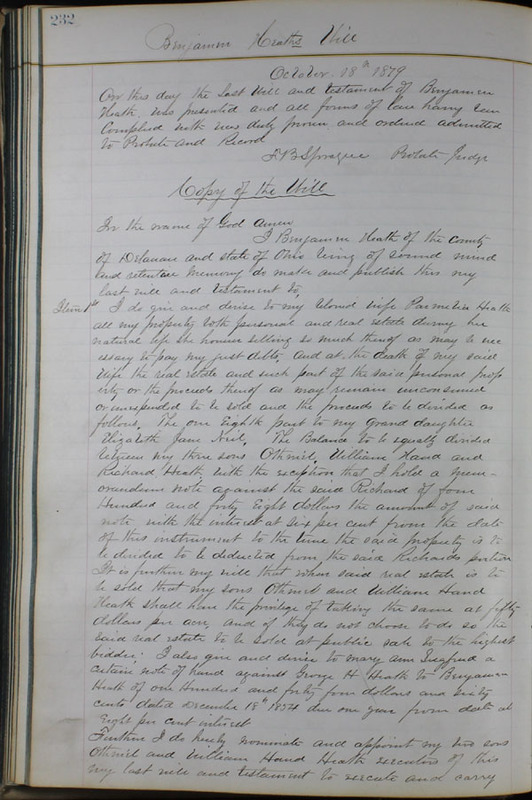 232
Benjamin Heaths Will
October 18th 1879
On this day the Last Will and testament of Benjamin
Heath, was presented and all forms of law having been
Complied with was duly proven and ordered admitted
to Probate and Record
Sprague Probate Judge
Copy of the Will
In the name of God Amen
I Benjamin Heath of the County
of Delaware and state of Ohio being of sound mind
and retentive memory do make and publish this my
last will and testament to,
Item 1st I do give and devise to my beloved wife Parmelia Heath
all my property both personal and real estate during her
natural life she however selling so much thereof as may be nec
essary to pay my just debts and at the death of my said
wife the real estate and such part of the said personal prop
erty or the proceeds thereof as may remain unconsumed
or unexpended to be sold and the proceeds to be divided as
follows. The one Eighth part to my Grand daughter
Elizabeth Jane Neil, The Balance to be equally divided
between my three sons Othniel, William Hand and
Richard Heath with the exception that I hold a mem-
orandum note against the said Richard of four
Hundred and forty Eight dollars the amount of said
note with the interest at six per cent from the date
of this instrument to the time the said property is to
be divided to be deducted from the said Richards portion
It is further my will that when said real estate is to
be sold that my sons Othniel and William Hand
Heath shall have the privilege of taking the same at fifty
dollars per acre, and if they do not choose to do so the
said real estate to be sold at public sale to the highest
bidder: I also give and devise to Mary Ann Siegfried a
certain note of hand against George H Heath to Benjamin
Heath of one Hundred and forty four dollars and sixty
cents dated December 15th 1854 due one year from date at
Eight per cent interest
Further I do hereby nominate and appoint my two sons
Othniel and William Hand Heath executors of this
my last will and testament to execute and carry